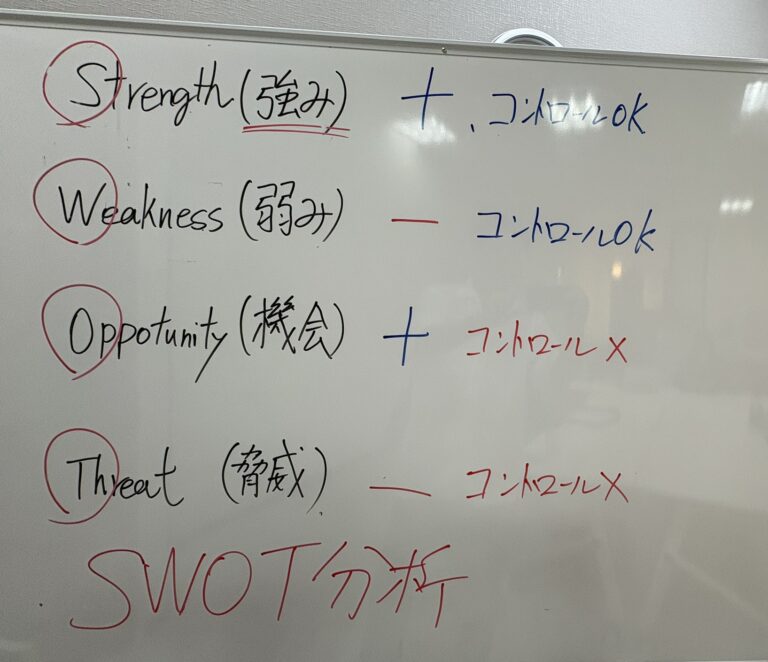 Strength (強み) + 、コントロールOK
Weakness (弱み) - コントロールOK
Oppotunity (機会) + コントロール×
Threat (脅威) - コントロール×
SWOT分析